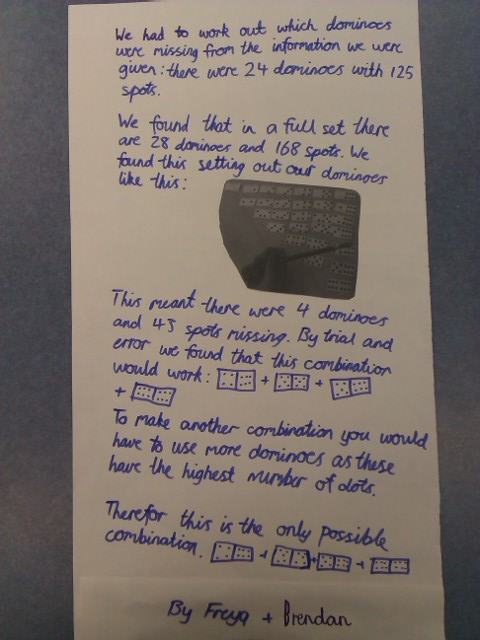 We had to work out which dominoes
were missing from the information we were
given: there were 24 dominoes with 125
spots.
We found that in a full set there
are 28 dominoes and 168 spots. We
found this setting out our dominoes
like this:
This meant there were 4 dominoes
and 43 spots missing. By trial and
error we found that this combination
would work: + +
+
To make another combination you would
have to use more dominoes as these
have the highest number of dots.
Therefor this is the only possible
combination. + + +
By Freya + Brendan